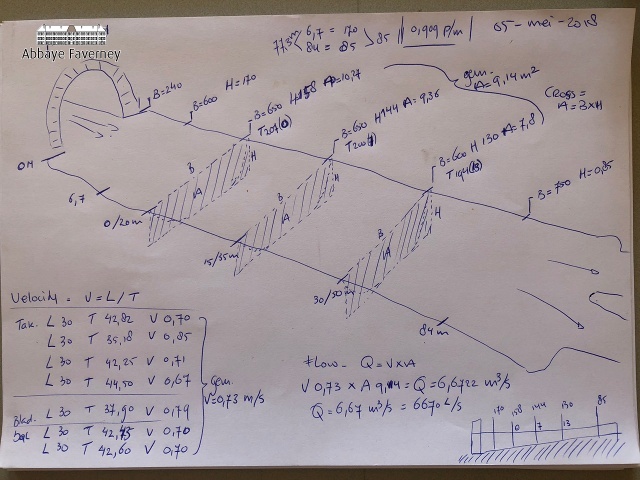 Abbaye Faverney
77.3m 6,7 = 170
84 = 85
85 || 0,909 P/m ||
05-mei-2018
B=240
B=600 H=170
B=650 H158 A=10,27
T207(0)
B=650 H144 A=9,36
T200(7)
B=600 H 130 A=7,8
T194(13)
B=750 H=0,85
gem.
A=9,14 m²
CROSS=
A=BxH
0M
6,7
0/20m
15/35m
30/50m
84m
B
A
H
B
A
H
B
A
H
Velocity = V=L/T
Tak. L 30 T 42,82 V 0,70
L 30 T 35,18 V 0,85
L 30 T 42,25 V 0,71
L 30 T 44,50 V 0,67
Blad. L 30 T 37,90 V 0,79
L 30 T 42,45 V 0,70
L 30 T 42,60 V 0,70
Gem.
V=0,73 m/s
Flow - Q=VxA
V 0,73 x A 9,14 = Q=6,6722 m³/s
Q=6,67 m³/s = 6670 L/s
170 158 144 130 85
0 7 13